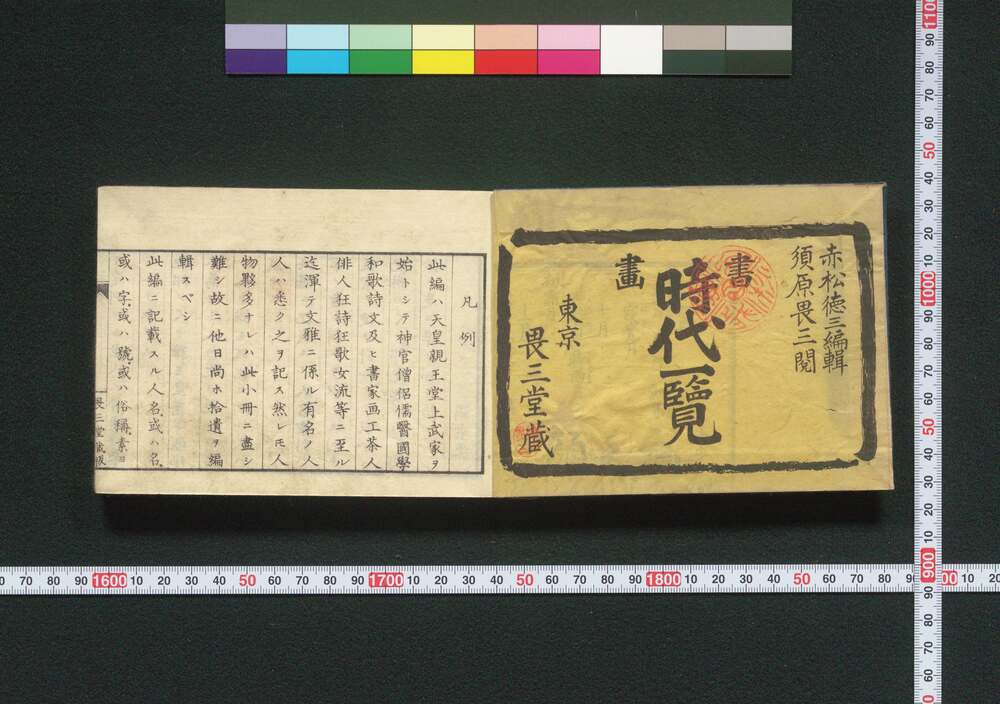 赤松徳三編輯
須原畏三閲
書畫
時代一覽
東京
畏三堂蔵
凡例
此編ハ天皇親王堂上武家ヲ
始トシテ神官僧侶儒醫國學
和歌詩文及ヒ書家画工茶人
俳人狂詩狂歌女流等ニ至ル
迄渾テ文雅ニ係ル有名ノ人
人ハ悉ク之ヲ記ス然レ𪜈人
物夥多ナレハ此小冊ニ盡シ
難シ故ニ他日尚ホ拾遺ヲ編
輯スベシ
此編ニ記載スル人名或ハ名
或ハ字或ハ號或ハ俗稱素ヨ
畏三堂蔵版
0 70 80 90 1600 10 20 30 40 50 60 70 80 90 1700 10 20 30 40 50 60 70 80 90 1800 10 20 30 40 50 60 70 80 90
1100 90 80 70 60 50 40 30 20 10 1000 90 80 70 60 50 40 30 20 10 900 90 80 70 60